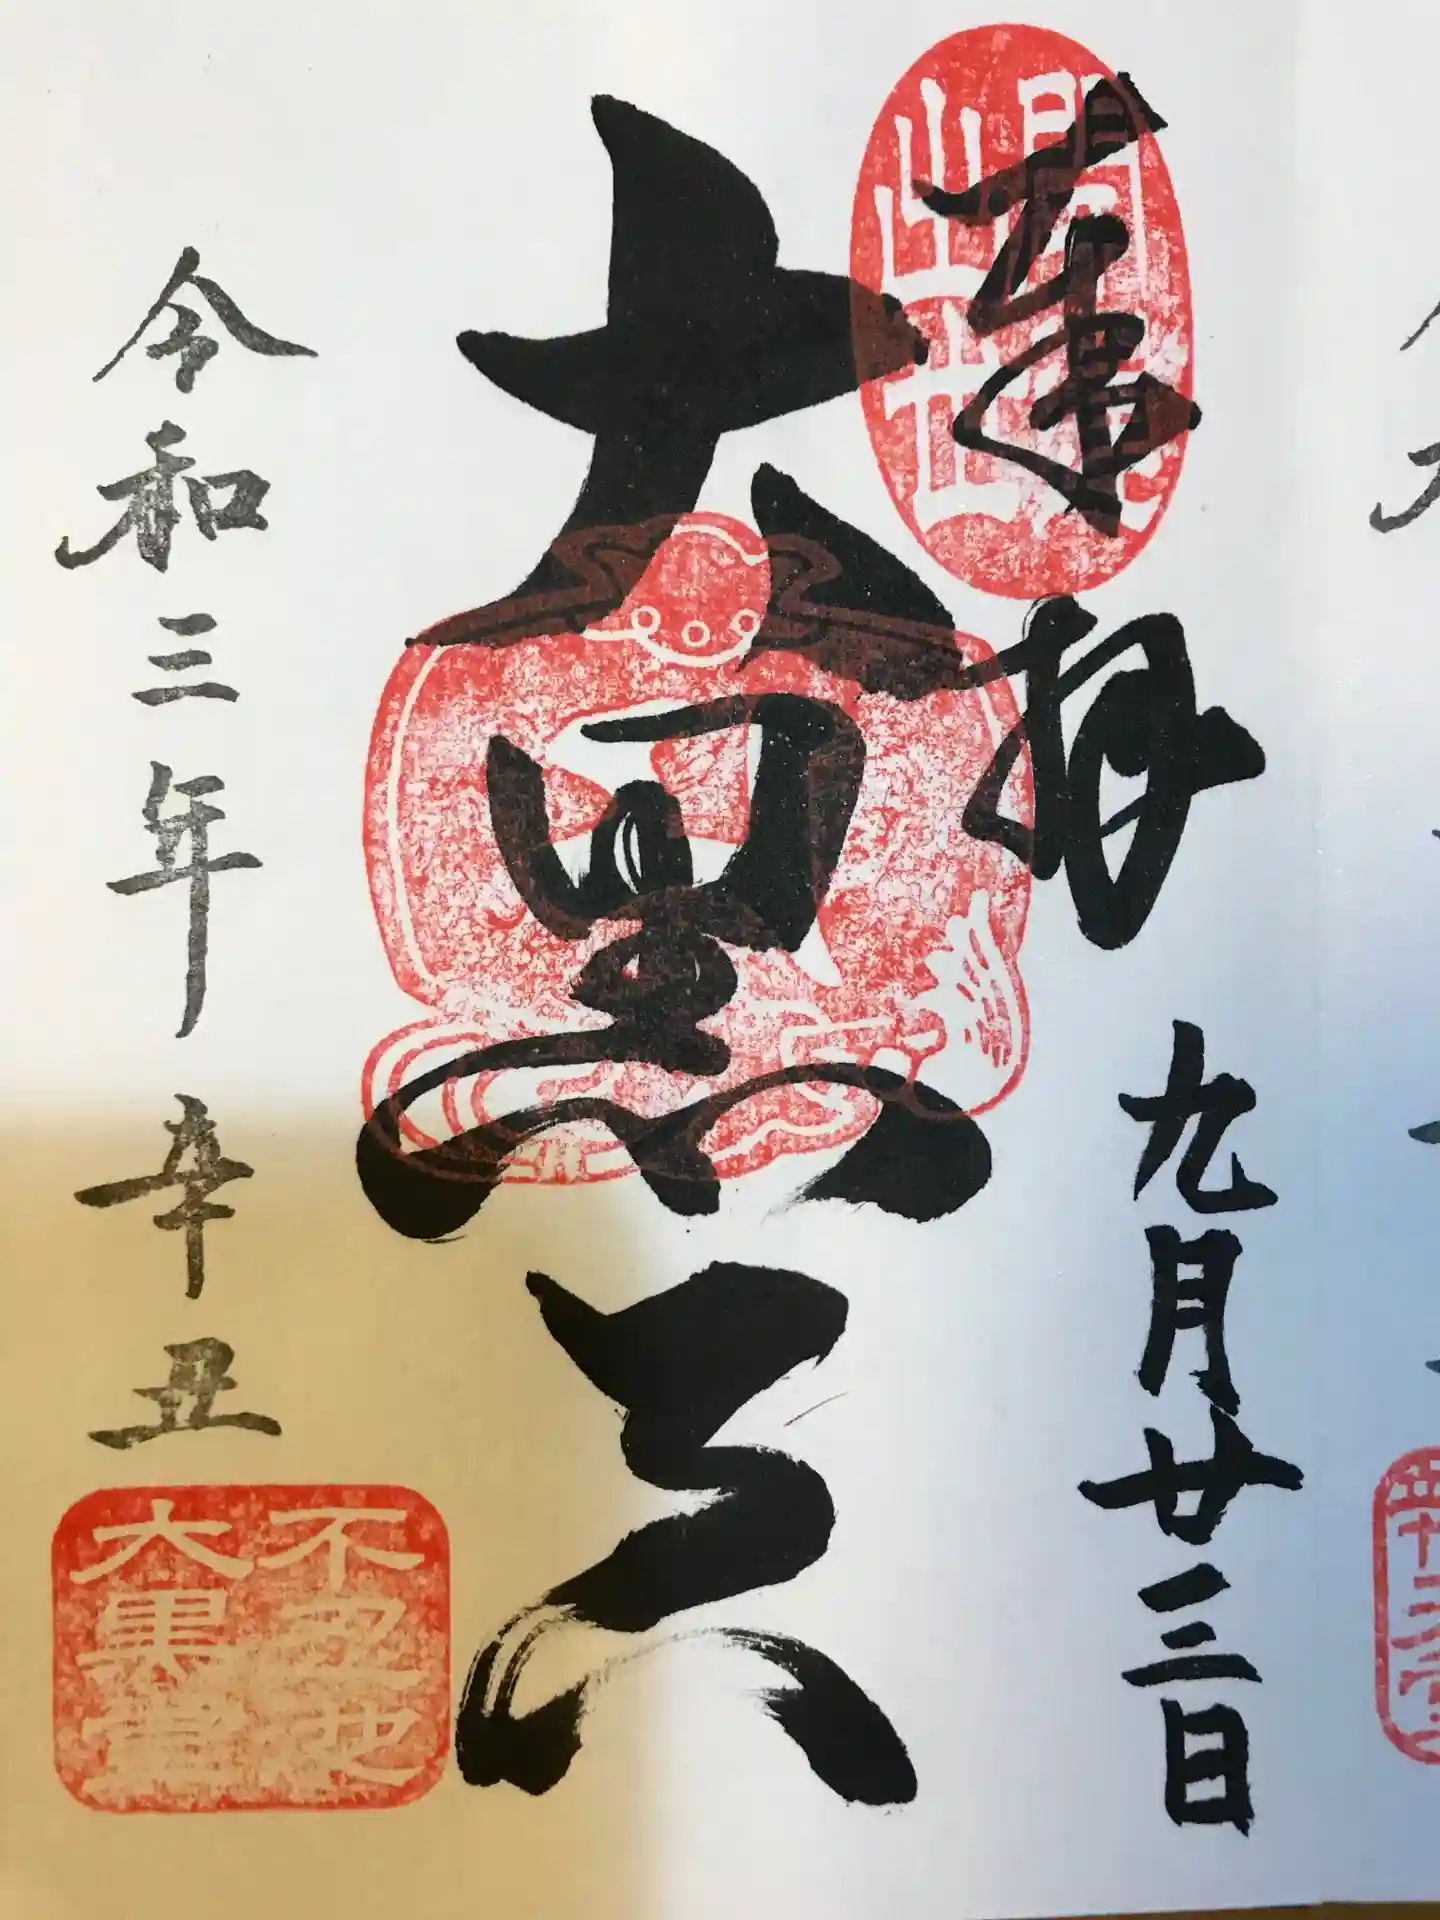 奉拝
九月廿三日
大黒天
令和三年辛丑
不忍池
大黒堂